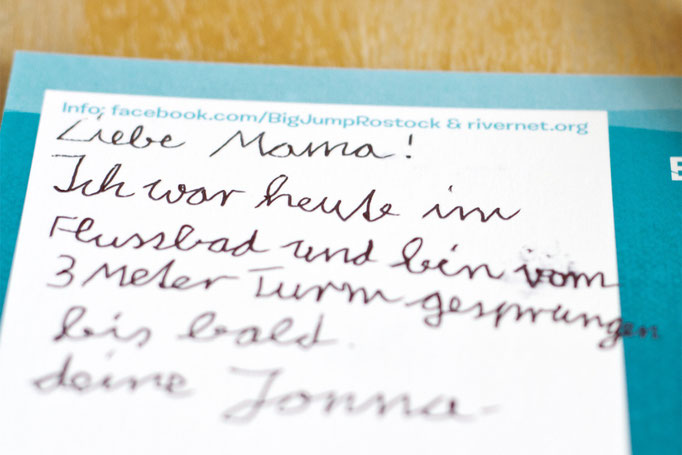 Info: facebook.com/BigJumpRostock & rivernet.org
Liebe Mama!
Ich war heute im
Flussbad und bin vom
3 Meter Turm gesprungen
bis bald.
deine Jonna